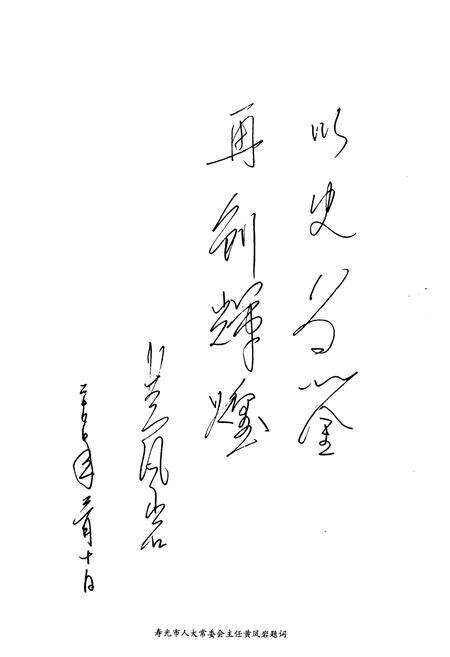 以史为鉴
再创辉煌
黄凤岩
年 月十日
寿光市人大常委会主任黄凤岩题词